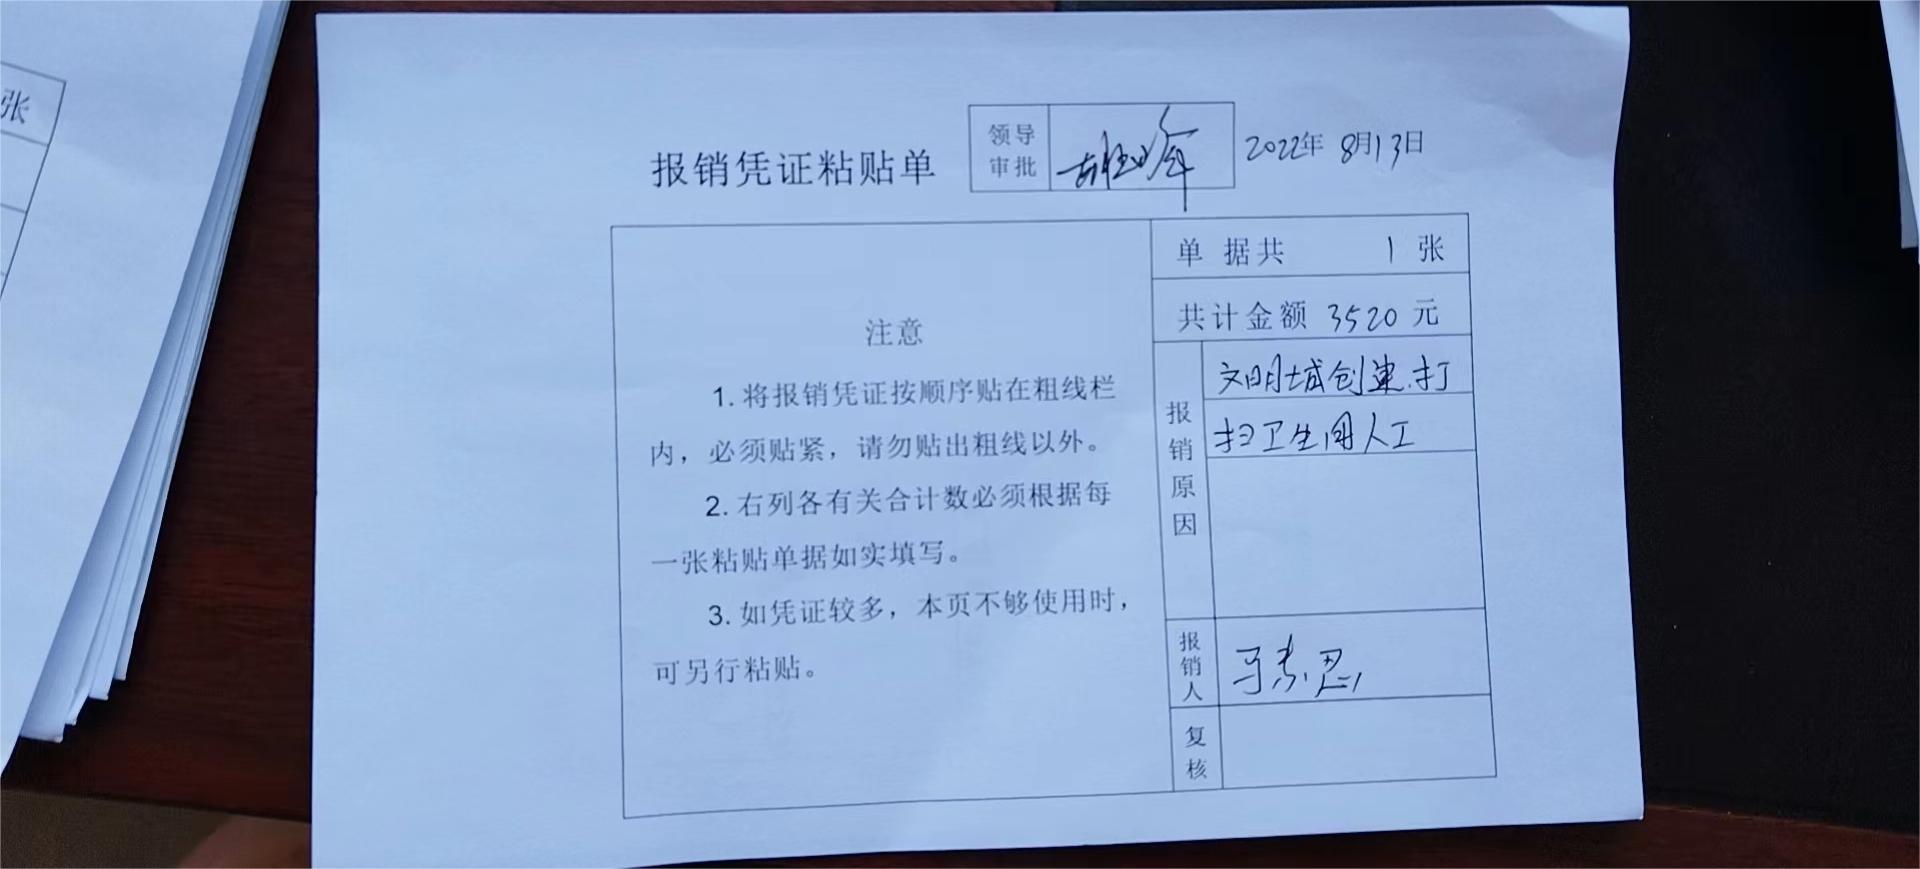 张
报销凭证粘贴单
领导
审批
2022年 8月13日
单 据共 1 张
共计金额 3520 元
报销原因
文明城创建.打
扫卫生用人工
注意
1. 将报销凭证按顺序贴在粗线栏
内，必须贴紧，请勿贴出粗线以外。
2. 右列各有关合计数必须根据每
一张粘贴单据如实填写。
3. 如凭证较多，本页不够使用时，
可另行粘贴。
报销人
复核